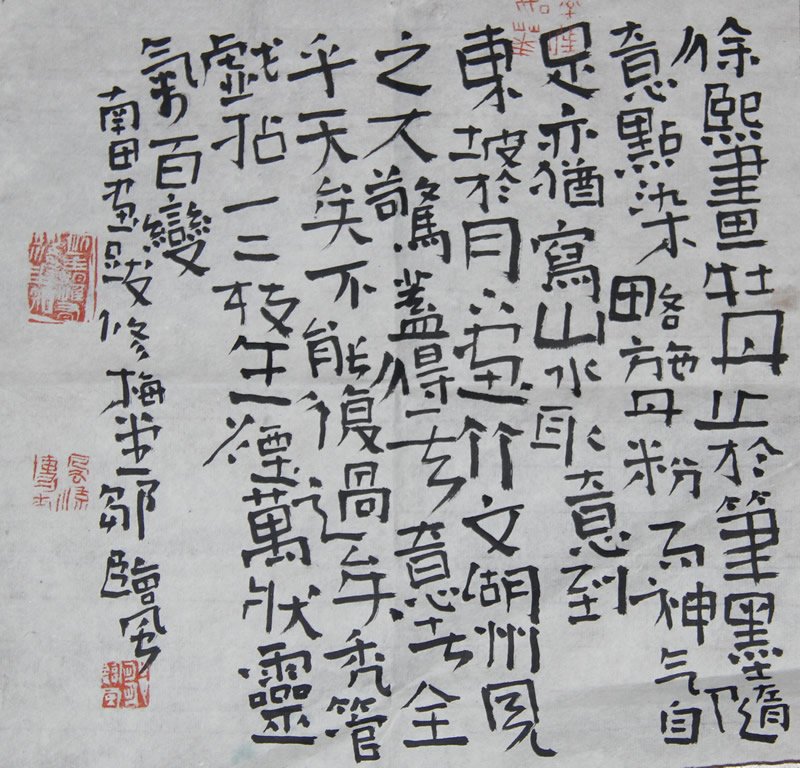 徐熙畫牡丹止於筆墨隨
意點染略施丹粉而神气自
足亦猶寫山水取意到
東坡於月下画竹文湖州見
之大驚蓋得其意者全
乎天矣不能復過矣禿管
戲拈一二枝生煙萬狀靈
氣百變
南田画跋修梅堂鄒臨風